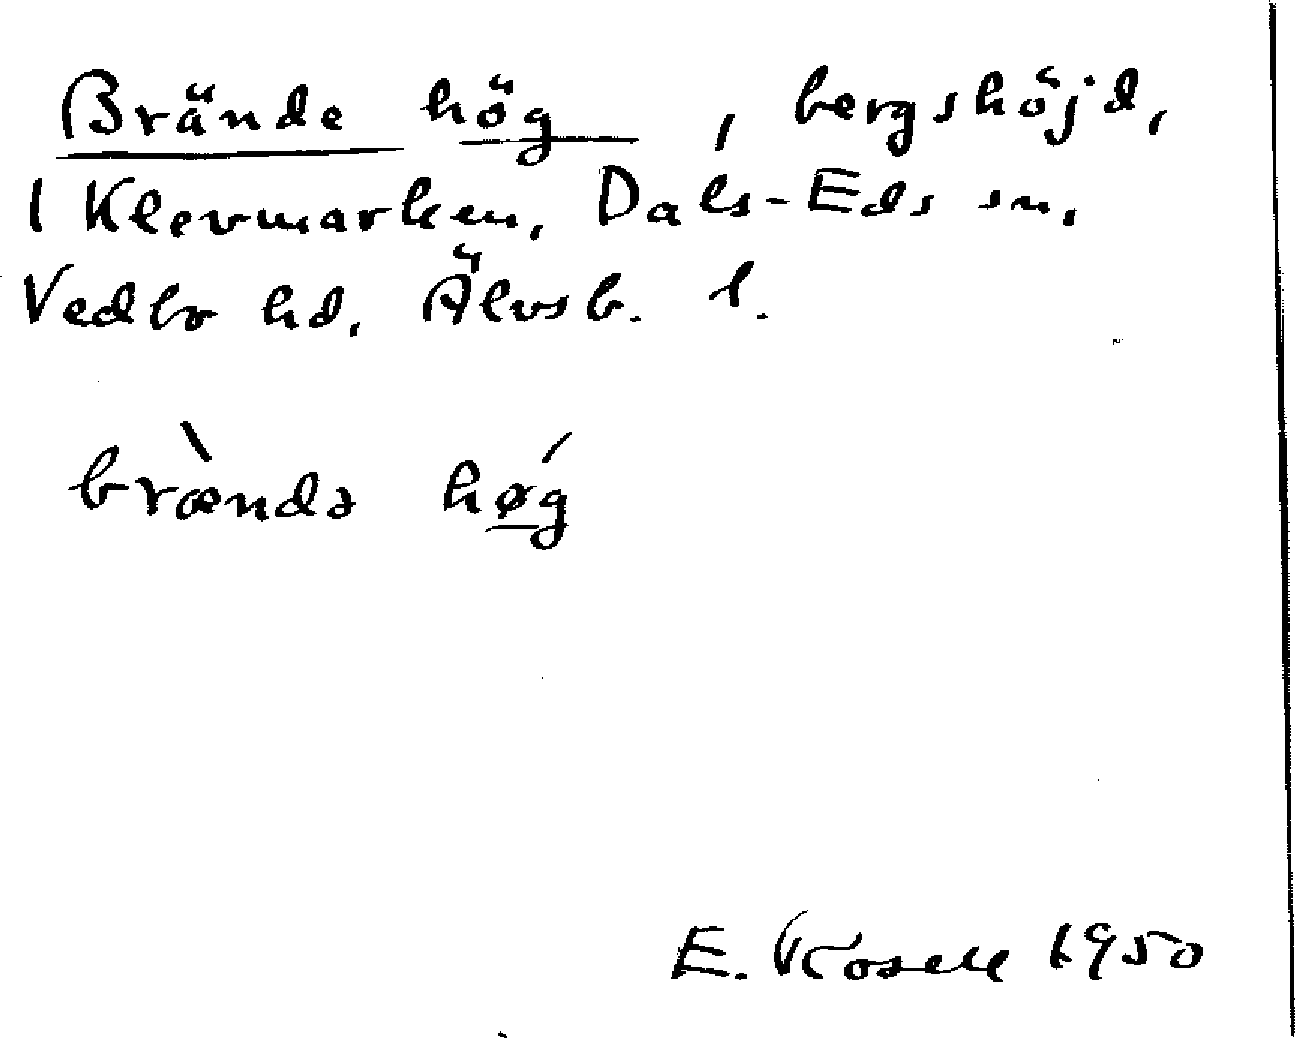 Brände hög, bergshöjd,
I Klevmarken, Dals-Eds sn,
Vedbo hd, Älvsb. l.
bræ̀ndə hǿ̲g
E. Rosell 1950